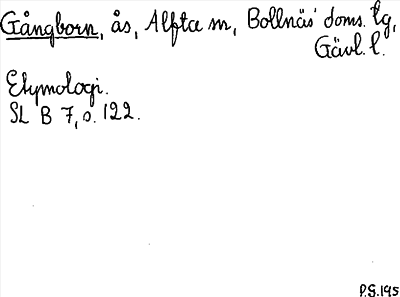 Gångborn, ås, Alfta sn, Bollnäs doms. tg,
Gävl. l.
Etymologi.
SL B 7, s. 122.
P.G. 195